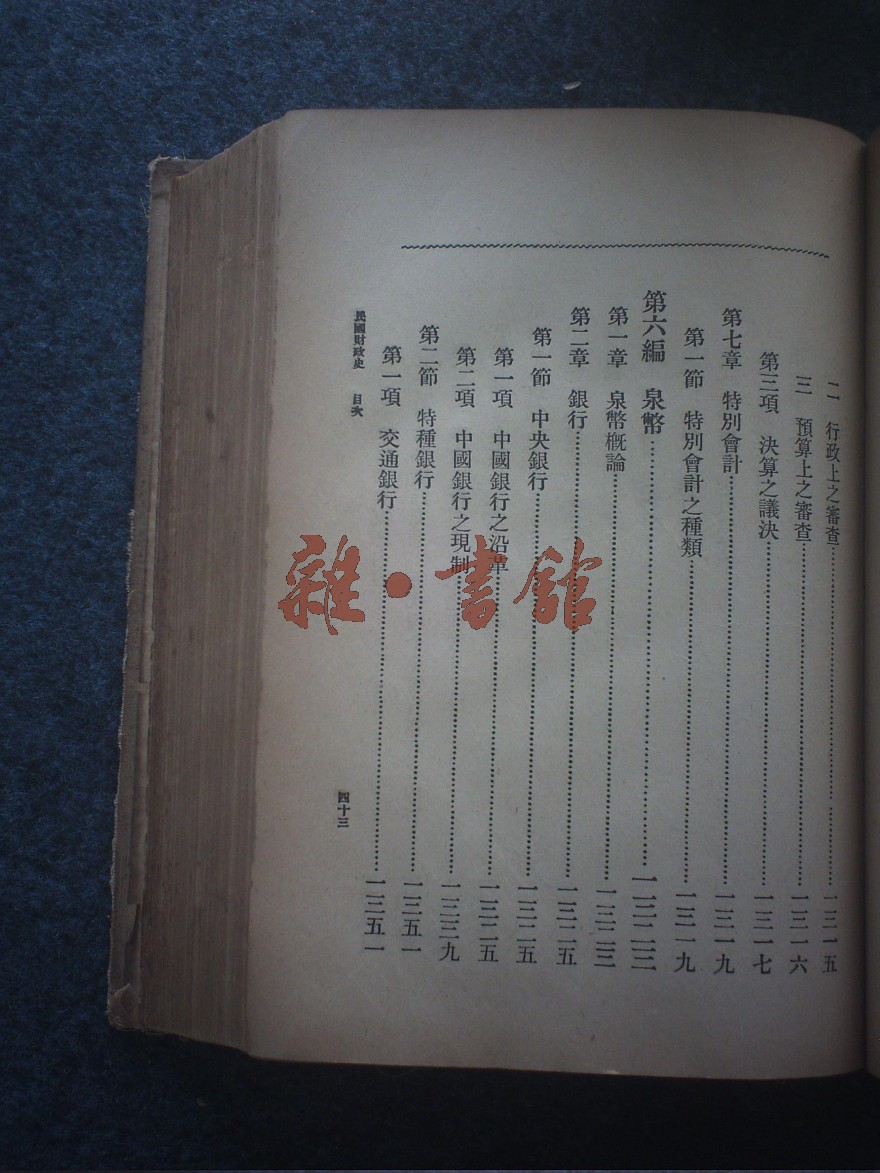 二　行政上之審查……一三一五
三　預算上之審查……一三一六
第三項　決算之議決……一三一七
第七章　特別會計……一三一九
第一節　特別會計之種類……一三一九
第六編　泉幣……一三二三
第一章　泉幣概論……一三二三
第二章　銀行……一三二五
第一節　中央銀行……一三二五
第一項　中國銀行之沿革……一三二五
第二項　中國銀行之現制……一三三九
第二節　特種銀行……一三五一
第一項　交通銀行……一三五一
民國財政史　目次　四十三
雜·書館